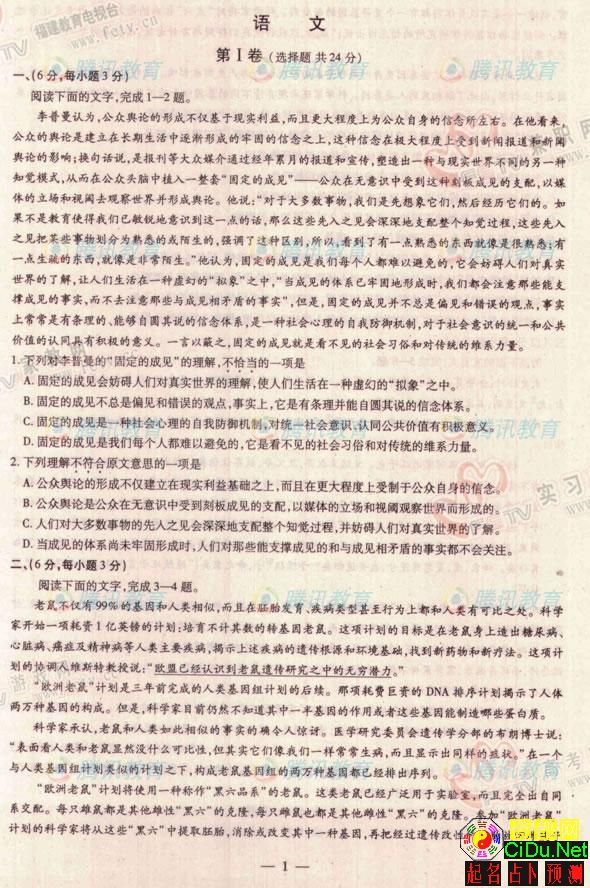 语 文
第Ⅰ卷(选择题 共24分)
一、(6分,每小题3分)
阅读下面的文字,完成1—2题。
李普曼认为,公众舆论的形成不仅基于现实利益,而且更大程度上为公众自身的信念所左右。在他看来,
公众的舆论是建立在长期生活中逐渐形成的牢固的信念之上,这种信念在极大程度上受到新闻报道和新闻
舆论的影响;换句话说,是报刊等大众媒介通过经年累月的报道和宣传,塑造出一种与现实世界不同的另一种
知觉模式,从而在公众头脑中植入一整套“固定的成见”——公众在无意识中受到这种刻板成见的支配,以媒
体的立场和视阈去观察世界并形成舆论。他说:“对于大多数事物,我们是先想象它们,然后经历它们的。如
果不是教育使得我们已敏锐地意识到这一点的话,那么这些先入之见会深深地支配整个知觉过程,这些先入
之见把某些事物划分为熟悉的或陌生的,强调了这种区别,所以,看到了有一点熟悉的东西就像是很熟悉;有
一点生疏的东西,就像是非常陌生。”他认为,固定的成见是我们每个人都难以避免的,它会妨碍人们对真实
世界的了解,让人们生活在一种虚幻的“拟象”之中,“当成见的体系已牢固地形成时,我们都会注意那些能支
撑成见的事实,而不去注意那些与成见相矛盾的事实”,但是,固定的成见并不总是偏见和错误的观点,事实
上常常是有条理的、能够自圆其说的信念体系,是一种社会心理的自我防御机制,对于社会意识的统一和公共
价值的认同具有积极的意义。一言以蔽之,固定的成见就是看不见的社会习俗和对传统的维系力量。
1. 下列对李普曼的“固定的成见”的理解,不恰当的一项是
A. 固定的成见会妨碍人们对真实世界的理解,使人们生活在一种虚幻的“拟象”之中。
B. 固定的成见不总是偏见和错误的观点,事实上,它是有条理并能自圆其说的信念体系。
C. 固定的成见是一种社会心理的自我防御机制,对统一社会意识,认同公共价值有积极意义。
D. 固定的成见是我们每个人都难以避免的,它是看不见的社会习俗和对传统的维系力量。
2. 下列理解不符合原文意思的一项是
A. 公众舆论的形成不仅建立在现实利益基础之上,而且在更大程度上受制于公众自身的信念。
B. 公众舆论是公众在无意识中受到刻板成见的支配,以媒体的立场和视阈观察世界而形成的。
C. 人们对大多数事物的先入之见会深深地支配整个知觉过程,并妨碍人们对真实世界的了解。
D. 当成见的体系尚未牢固形成时,人们对那些能支撑成见的和与成见相矛盾的事实都不会关注。
二、(6分,每小题3分)
阅读下面的文字,完成3—4题。
老鼠不仅有99%的基因和人类相似,而且在胚胎发育、疾病类型甚至行为上都和人类有可比之处。科学
家开始一项耗资1亿英镑的计划:培育不计其数的转基因老鼠。这项计划的目标是在老鼠身上造出糖尿病、
心脏病、癌症及精神病等人类主要疾病,揭示上述疾病的遗传根源和环境基础,找到新药物和新疗法。这项计
划的协调人维斯特教授说:“欧盟已经认识到老鼠遗传研究之中的无穷潜力。”
“欧洲老鼠”计划是三年前完成的人类基因组计划的后续。那项耗费巨资的DNA排序计划揭示了人体
两万种基因的构成。但是,科学家目前仍然不知道其中一半基因的作用或者这些基因能制造哪些蛋白质。
科学家承认,老鼠和人类如此相似的事实的确令人惊讶。医学研究委员会遗传学分部的布朗博士说:
“表面看人类和老鼠显然没什么可比性,但其实它们像我们一样常常生病,而且显示出同样的症状。”在一个
与人类基因组计划类似的计划之下,构成老鼠基因组的两万种基因都已经排出序列。
“欧洲老鼠”计划将使用一种称作“黑六品系”的老鼠。这类老鼠已经广泛用于实验室,而且完全出自同
系交配。每只雌鼠都是其他雌性“黑六”的克隆,每只雄鼠也都是其他雄性“黑六”的克隆。参加“欧洲老鼠”
计划的科学家将从这些“黑六”中提取胚胎,消除或改变其中一种基因,再把经过遗传改性
— 1 —
福建教育电视台
www.fcjy.tv
腾讯教育
CiDu.Net
起名占卜预测